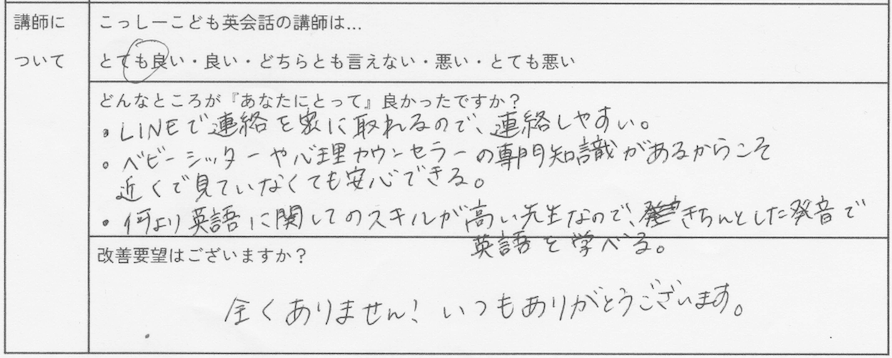 講師に
ついて
こっしーこども英会話の講師は…
とても良い・良い・どちらとも言えない・悪い・とても悪い
どんなところが『あなたにとって』良かったですか？
・LINEで連絡を密に取れるので、連絡しやすい。
・ベビーシッターや心理カウンセラーの専門知識があるからこそ
近くで見ていなくても安心できる。
・何より英語に関してのスキルが高い先生なので、きちんとした発音で
英語を学べる。
改善要望はございますか？
全くありません！いつもありがとうございます。